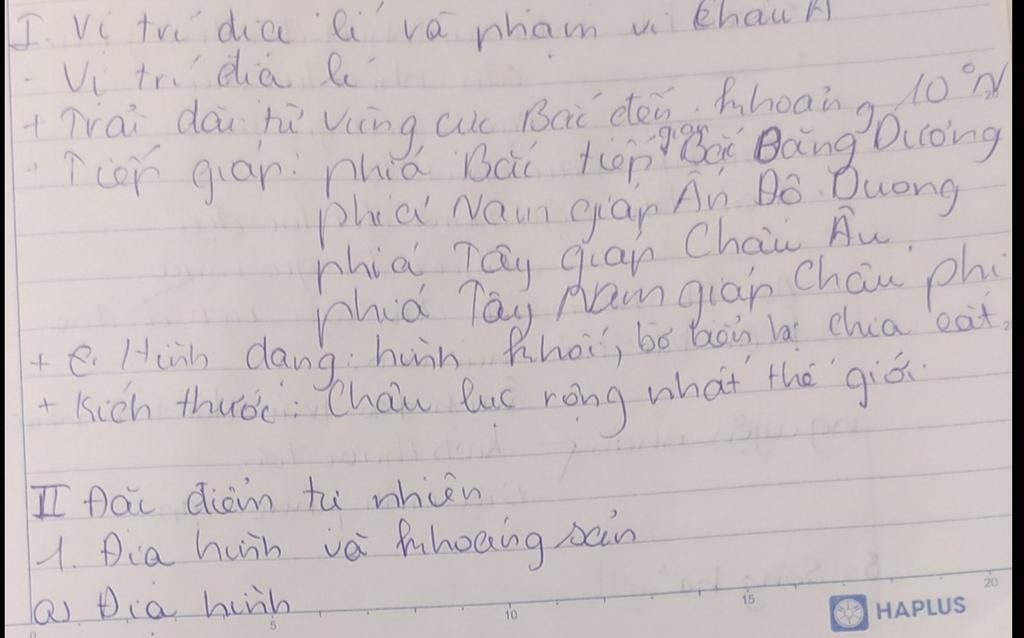 I. Vị trí địa lí và phạm vi Châu Á
- Vị trí địa lí
+ Trải dài từ vùng cực Bắc đến khoảng 10°N
- Tiếp giáp: phía Bắc tiếp giáp Bắc Băng Dương
phía Nam giáp Ấn Độ Dương
phía Tây giáp Châu Âu.
phía Tây Nam giáp Châu Phi
+ Hình dạng: hình khối, bờ biển bị chia cắt.
+ Kích thước: Châu lục rộng nhất thế giới.
II Đặc điểm tự nhiên
1. Địa hình và khoáng sản
a) Địa hình
0 5 10 15 20
HAPLUS